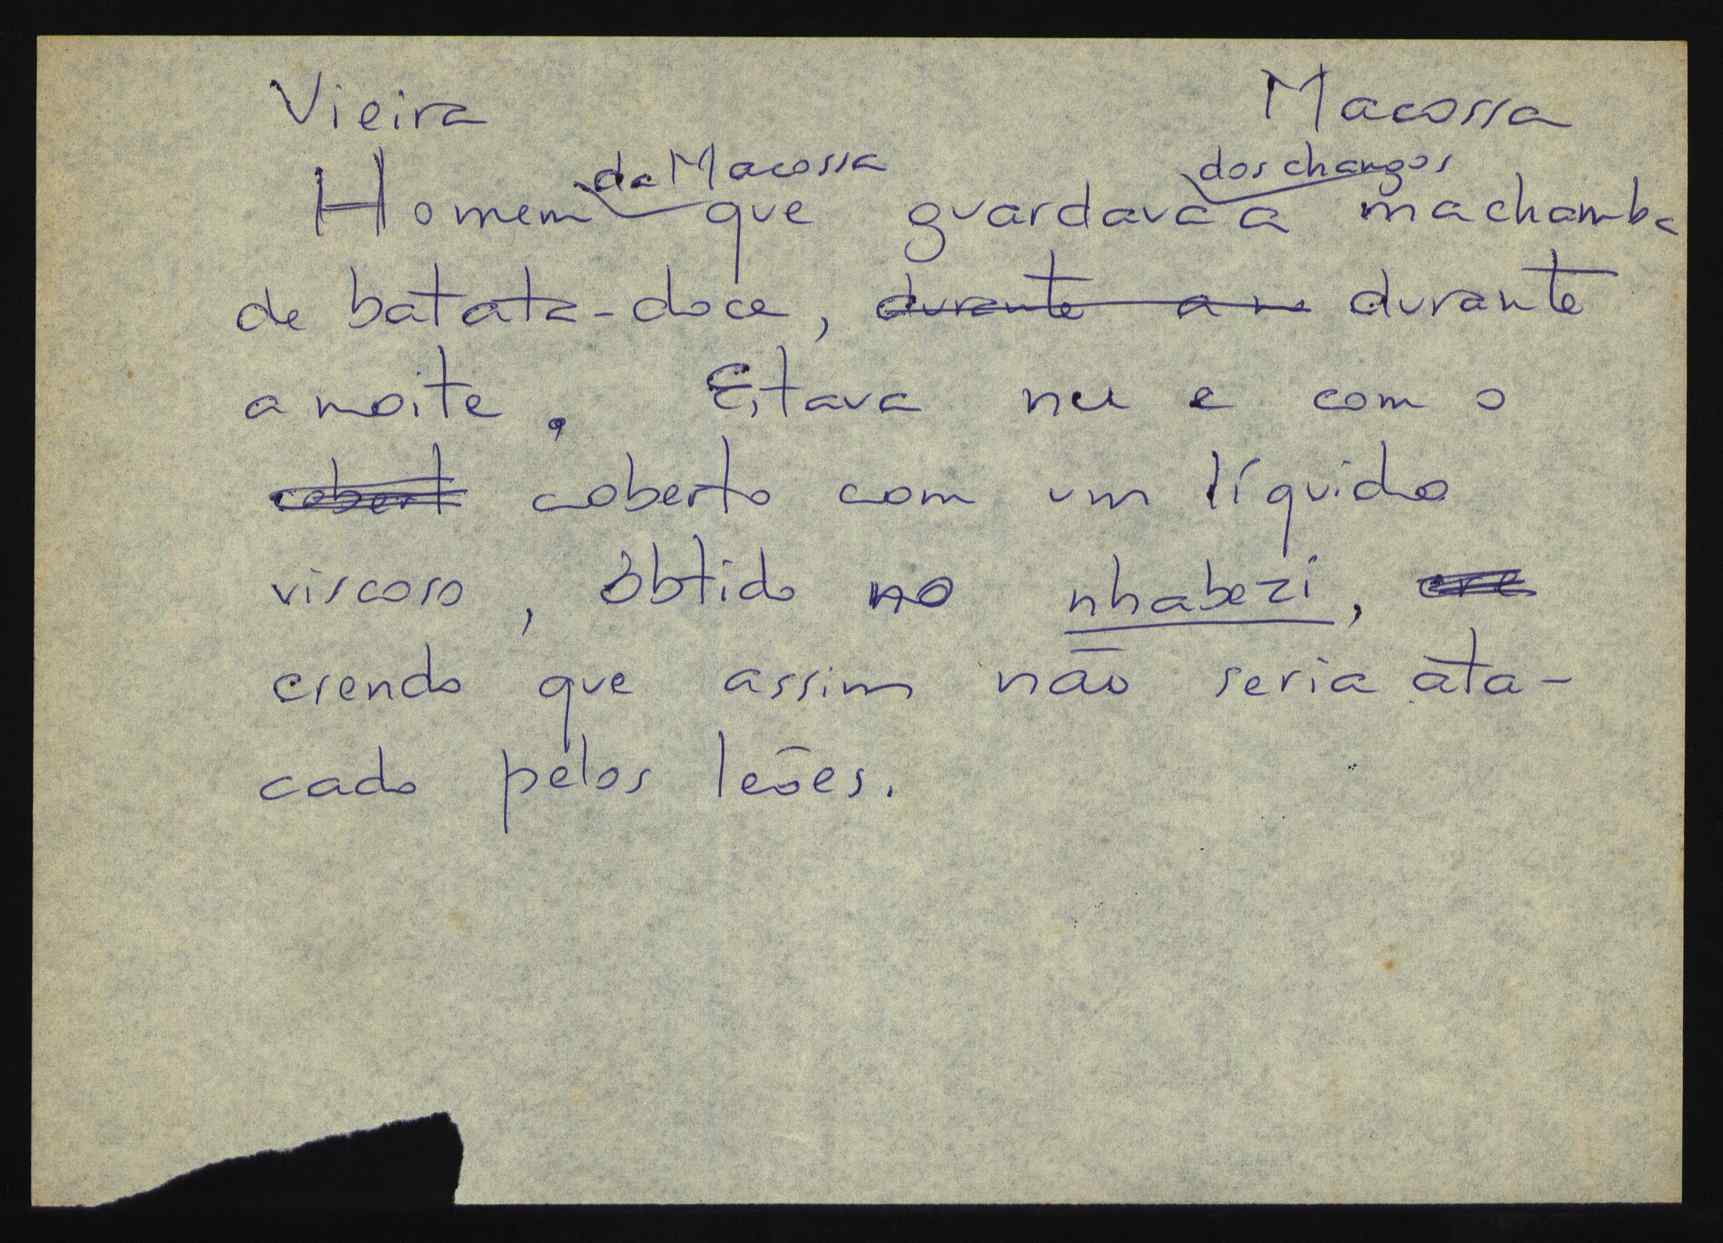 Vieira Macossa
da Macossa dos changos
Homem que guardava a machamba
de batata-doce, durante a n durante
a noite. Estava nu e com o
cobert coberto com um líquido
viscoso, obtido no nhabezi, cre
crendo que assim não seria ata-
cado pelos leões.